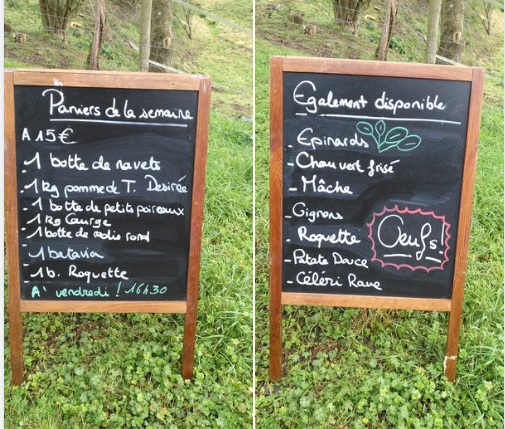 Paniers de la semaine
A 15€
- 1 botte de navets
- 1 kg pomme de T. Desirée
- 1 botte de petits poireaux
- 1 kg Courge
- 1 botte de radis rond
- 1 batavia
- 1 b. Roquette
A' vendredi ! 16h30
Egalement disponible
- Epinards
- Chou vert frisé
- Mâche
- Oignons
- Roquette
- Patate Douce
- Céléri Rave
Oeufs !